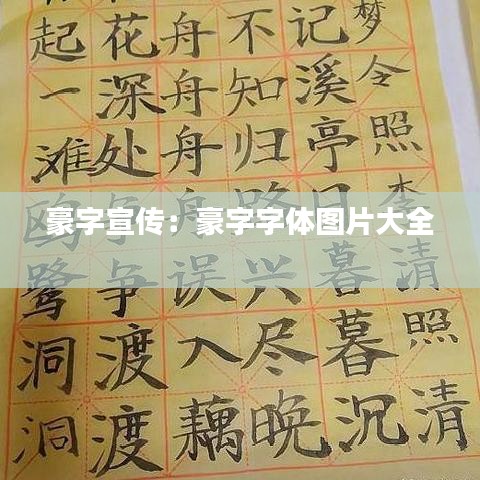 豪字宣传：豪字字体图片大全
梦令照李清照清
记溪亭日暮暮沉
不知归路兴尽晚
舟舟舟误入藕
花深处争渡渡
起一滩鸥鹭洞洞